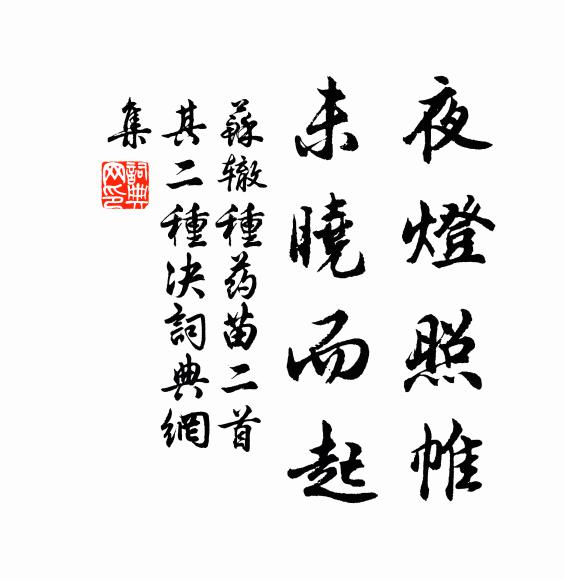 夜燈照帷
未曉而起
蘇辙種药苗二首
其二種決詞典網
集
詞典
网印